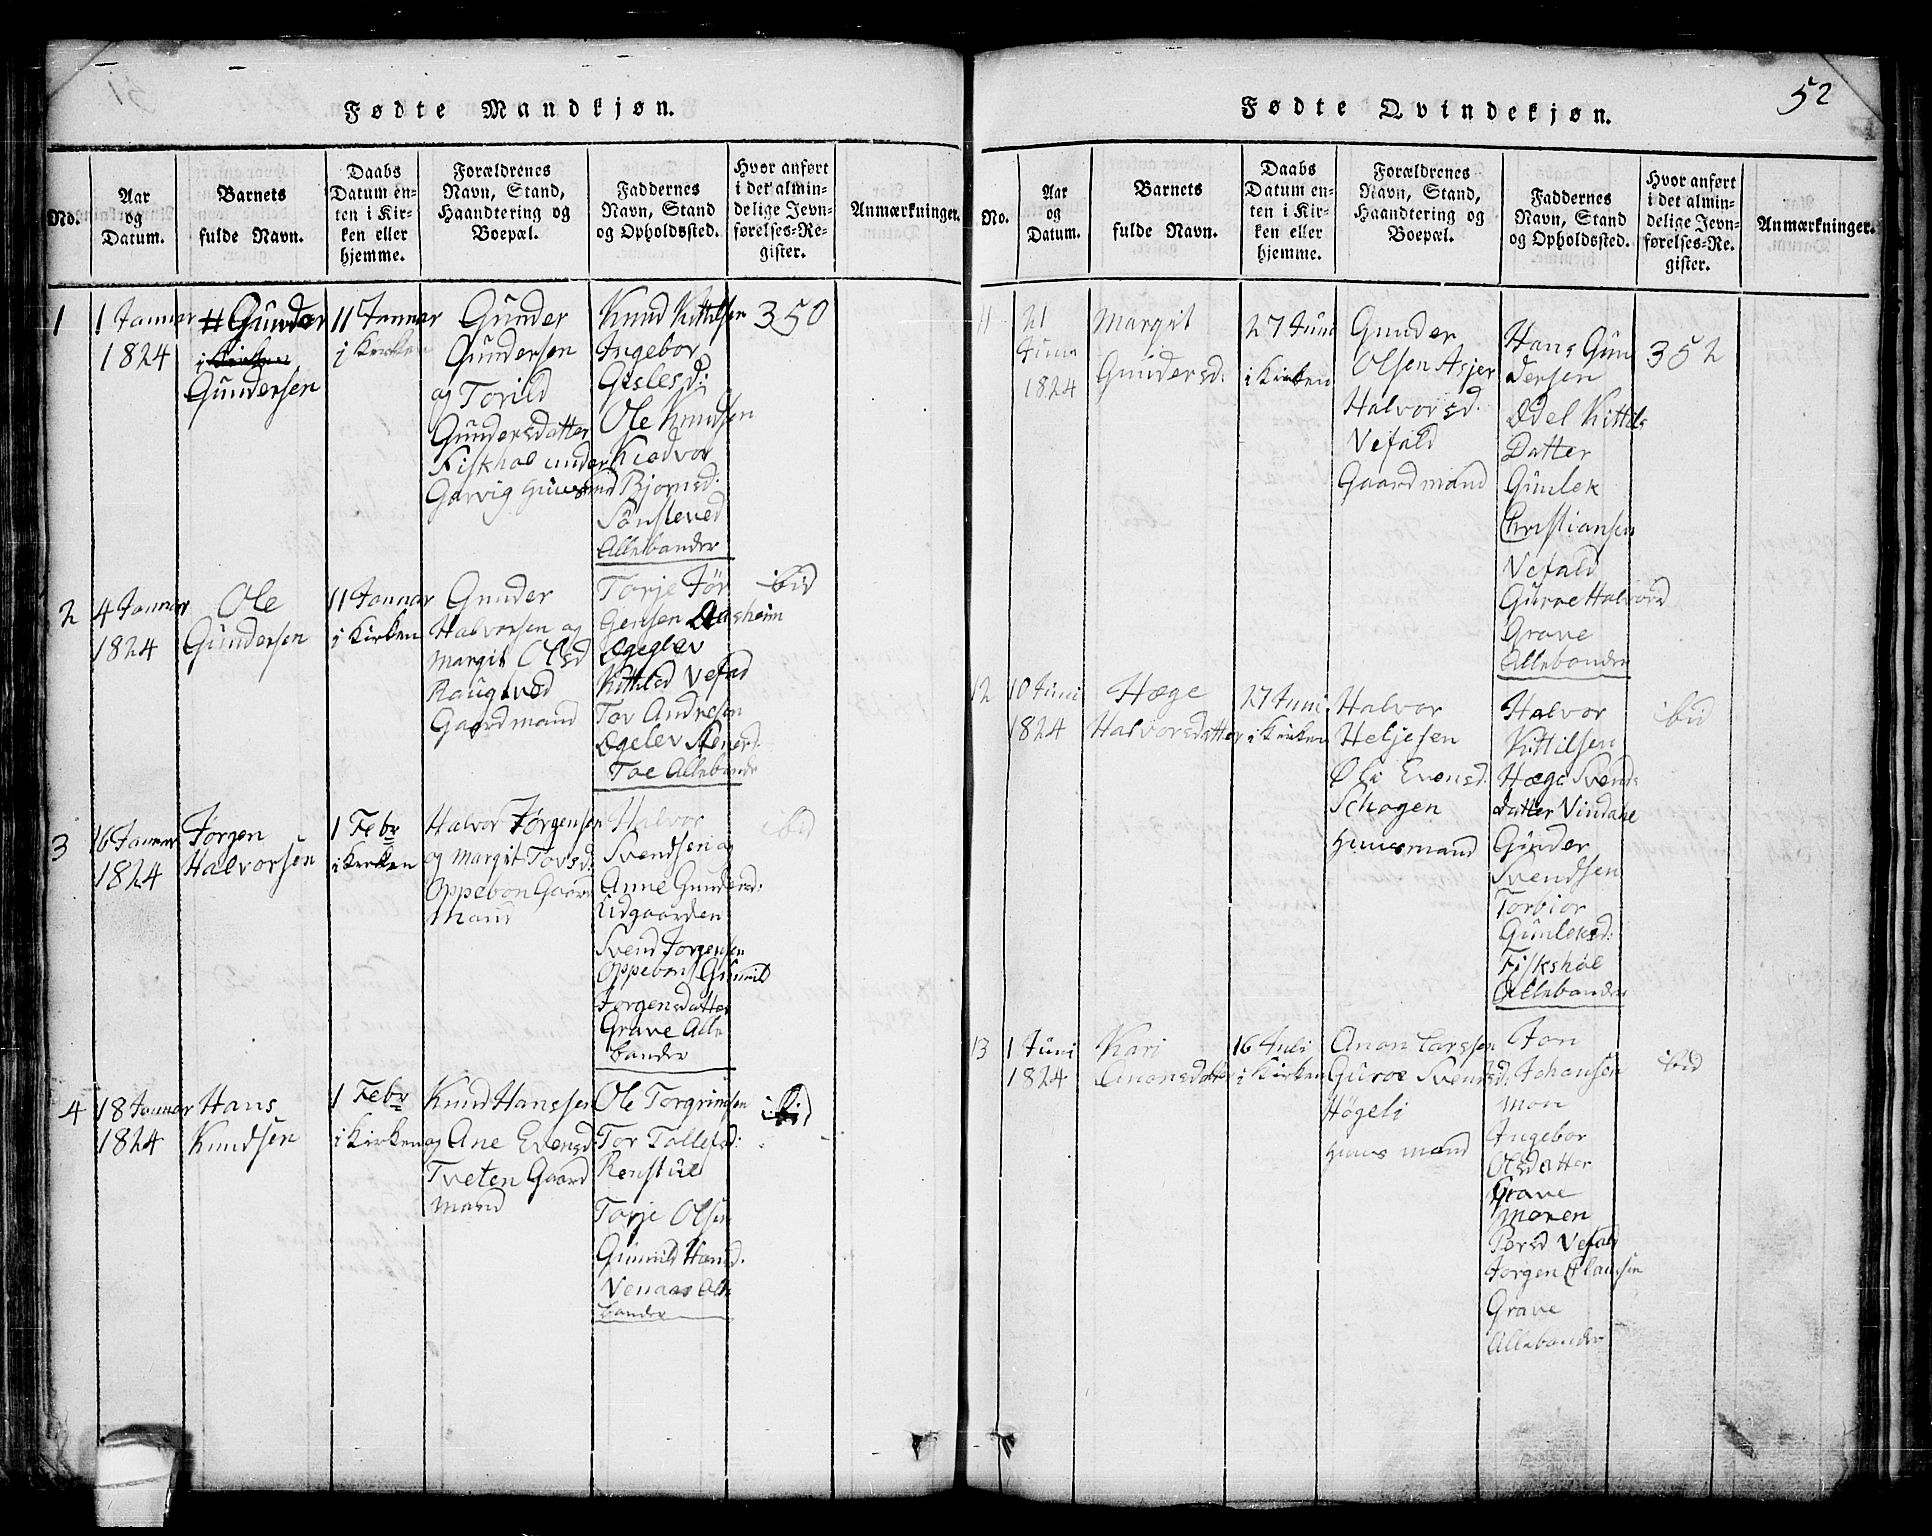 Fødte Mandkjøn.
No.
Aar
og
Datum.
Barnets
fulde Navn.
Daabs
Datum en-
ten i Kir-
ken eller
hjemme.
Forældrenes
Navn, Stand,
Haandtering og
Boepæl.
Faddernes
Navn, Stand
og Opholdssted.
Hvor anført
i det almin-
delige Jevn-
førelses-Re-
gister.
Anmærkninger.
1
1 Januar
1824
# Gunder
i Kirken
Gundersen
11 Januar
i Kirken
Gunder
Gundersen
og Torild
Gundersdatter
Fiskhol under
Garvig Huusmd
Knud Kittilsen
Ingebor
Gislesd:
Ole Knudsen
Kiedvor
Bjornsd:
Sønsteved
Allebander
350
2
4 Januar
1824
Ole
Gundersen
11 Januar
i Kirken
Gunder
Halvorsen og
Margit Olsd
Raugsved
Gaardmand
Torje Jør
gensen Aasheim
Ægeglev
Kittilsd Vefald
Tov Andresen
Ægelev Stenersd.
Toe Allebander
ibid
3
16 Januar
1824
Jørgen
Halvorsen
1 Febr
i Kirken
Halvor Jørgensen
og Margit Tovsd:
Oppebøn Gaard
mand
Halvor
Svendsen og
Anne Gundersd:
Eidgaarden
Svend Jorgensen
Oppebøn Gunnild
Jorgensdatter
Grave Alle
bander
ibid
4
18 Januar
1824
Hans
Knudsen
1 Febr
i Kirken
Knud Hanssen
og Ane Evensd
Tveten Gaard
mand
Ole Torgrimsen
Tor Tollefsd:
Renstul
Torje Olsen
Gunnild Hansd.
Venaas Alle
bander
ibid
52
Fødte Qvindekjøn.
No.
Aar
og
Datum.
Barnets
fulde Navn.
Daabs
Datum en-
ten i Kir-
ken eller
hjemme.
Forældrenes
Navn, Stand,
Haandtering og
Boepæl.
Faddernes
Navn, Stand
og Opholdssted.
Hvor anført
i det almin-
delige Jevn-
førelses-Re-
gister.
Anmærkninger.
11
21
Juni
1824
Margit
Gundersd:
27 Juni
i Kirken
Gunder
Olsen Asjer
Halvorsd.
Vefald
Gaardmand
Hans Gun
dersen
Ædel Kittils
Datter
Gunlek
Christiansen
Vefald
Guroe Halvord
Grave
Allebander
352
12
10 Juni
1824
Hæge
Halvorsdatter
27 Juni
i Kirken
Halvor
Heljesen
Øli Evensd:
Schogen
Huusmand
Halvor
Kittilsen
Hæge Svends
datter Vindahl
Gunder
Svendsen
Torbior
Gunleksd:
Fiskshol
Allebander
ibid
13
1 Juni
1824
Kari
Anonsdatter
16 Juli
i Kirken
Anon Larssen
Guroe Svendsd:
Høgeli
Huus mand
Jon
Johansen
Mon
Ingebor
Olsdatter
Grave
Maren
Persd Vefald
Jorgen Clausen
Grave
Allebander
ibid